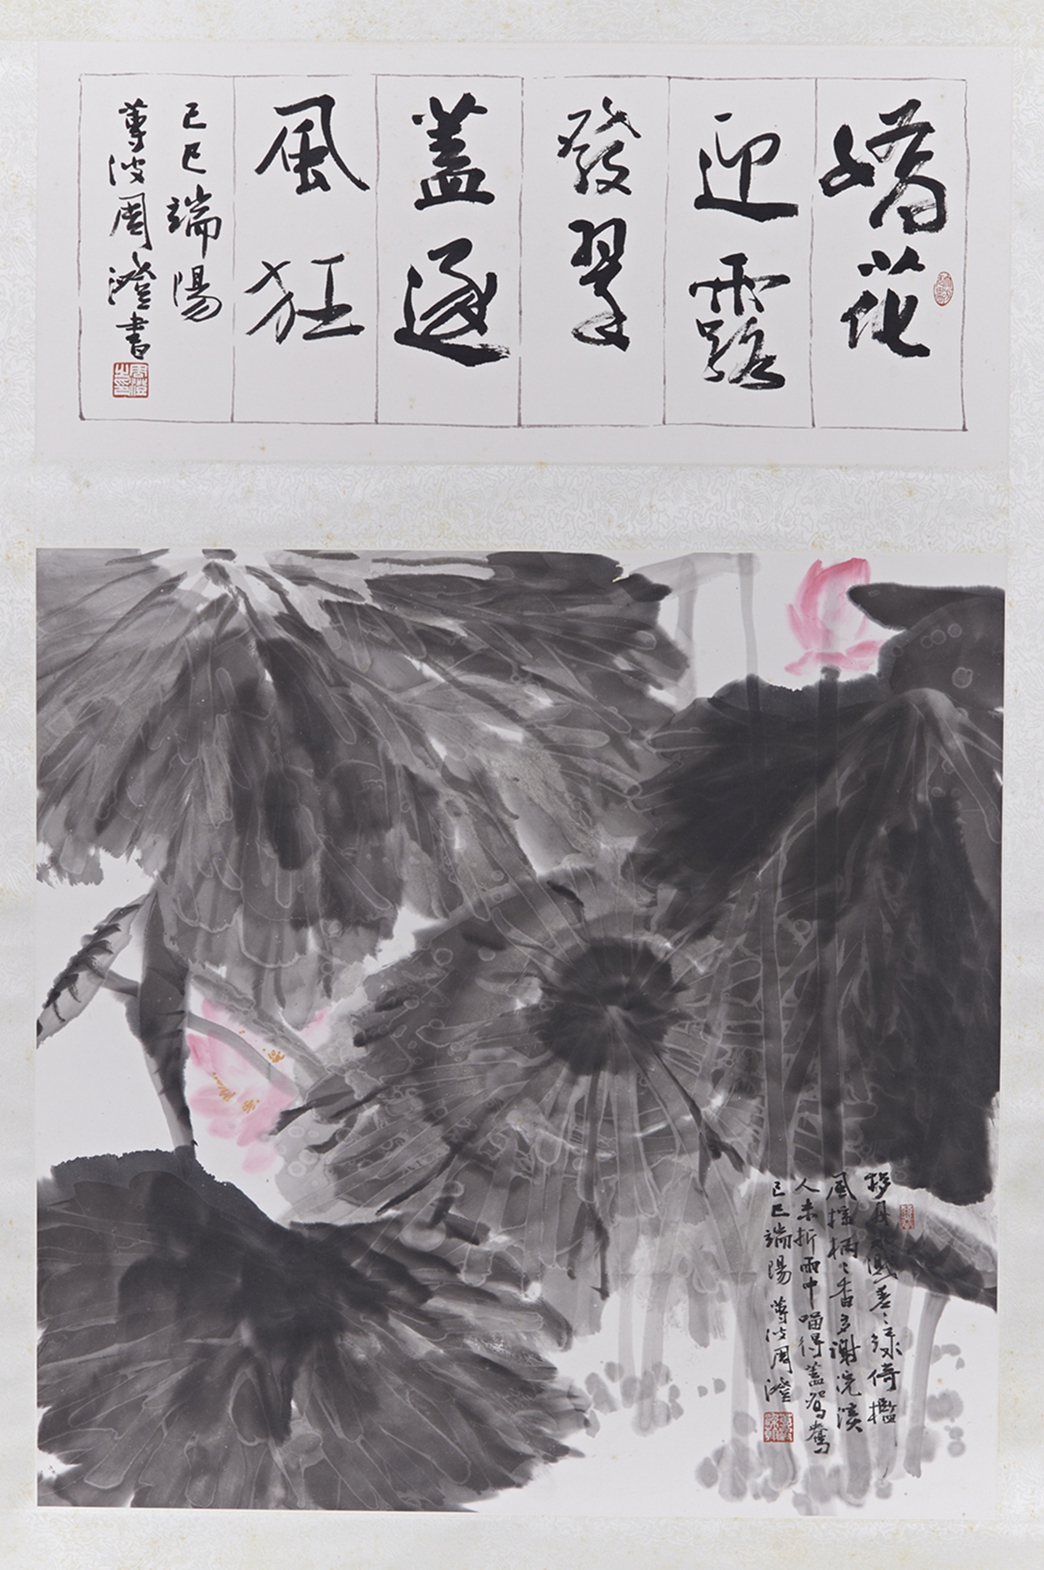 嬌花
迎露
發翠
蓋逐
風狂
己巳端陽
蓴波周澄書
周澄
移舟水濺差差綠倚檻
風搖柄柄香多謝浣溪
人未折雨中留得蓋鴛鴦
己巳端陽 蓴波周澄